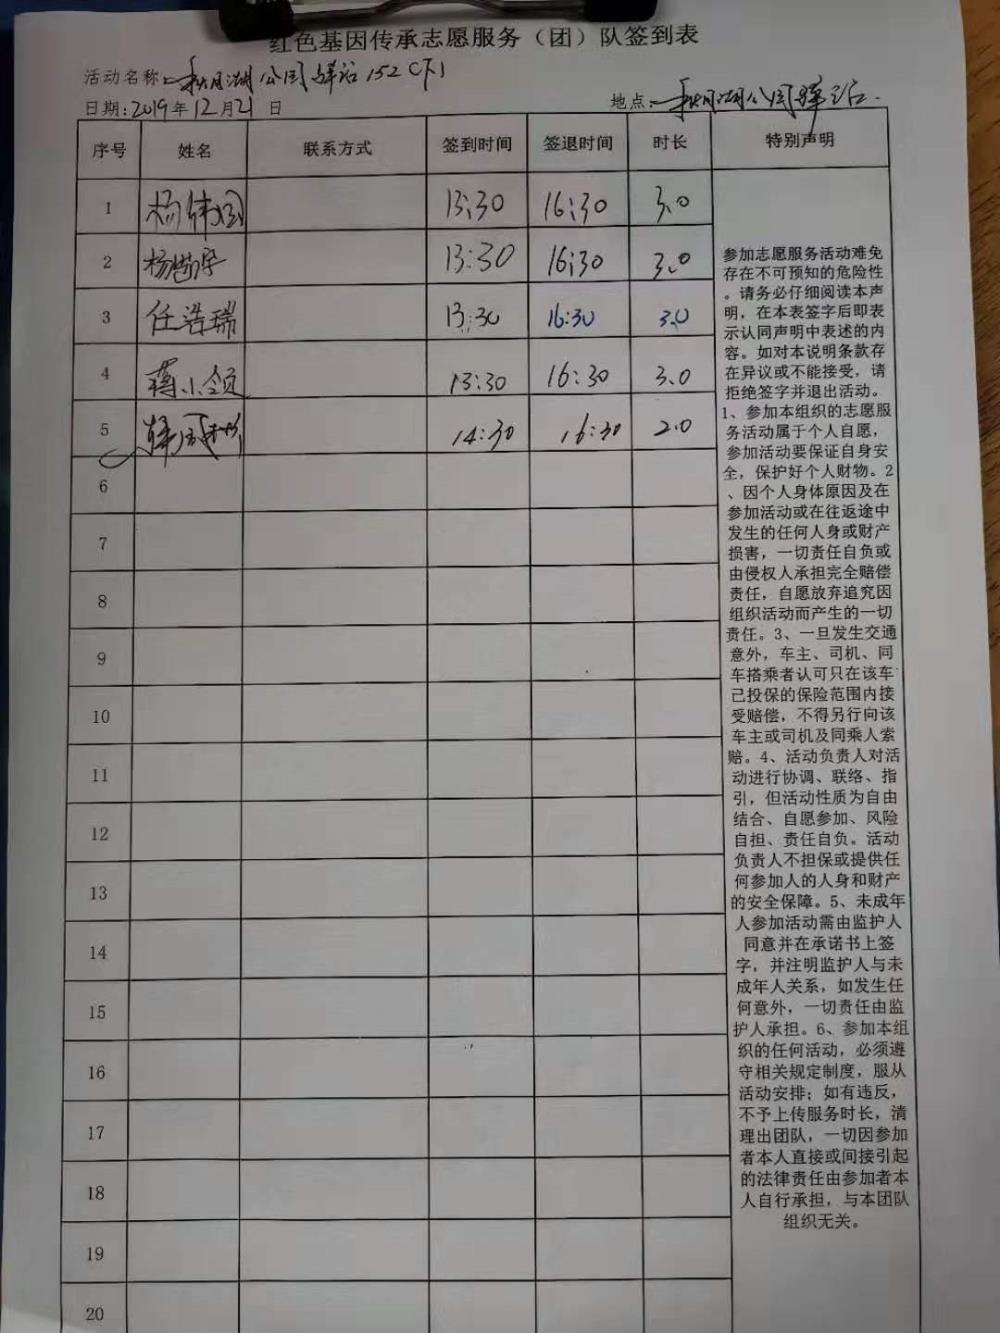 红色基因传承志愿服务（团）队签到表
活动名称: 秋月湖公园驿站152（下）
日期:2019年12月21日 地点: 秋月湖公园驿站.
序号 姓名 联系方式 签到时间 签退时间 时长 特别声明
1 杨 13:30 16:30 3.0
2 杨 13:30 16:30 3.0
3 任浩瑞 13:30 16:30 3.0
4 蒋小领 13:30 16:30 3.0
5 14:30 16:30 2.0
6
7
8
9
10
11
12
13
14
15
16
17
18
19
20
参加志愿服务活动难免
存在不可预知的危险性
。请务必仔细阅读本声
明，在本表签字后即表
示认同声明中表述的内
容。如对本说明条款存
在异议或不能接受，请
拒绝签字并退出活动。
1、参加本组织的志愿服
务活动属于个人自愿，
参加活动要保证自身安
全，保护好个人财物。2
、因个人身体原因及在
参加活动或在往返途中
发生的任何人身或财产
损害，一切责任自负或
由侵权人承担完全赔偿
责任，自愿放弃追究因
组织活动而产生的一切
责任。3、一旦发生交通
意外，车主、司机、同
车搭乘者认可只在该车
已投保的保险范围内接
受赔偿，不得另行向该
车主或司机及同乘人索
赔。4、活动负责人对活
动进行协调、联络、指
引，但活动性质为自由
结合、自愿参加、风险
自担、责任自负。活动
负责人不担保或提供任
何参加人的人身和财产
的安全保障。5、未成年
人参加活动需由监护人
同意并在承诺书上签
字，并注明监护人与未
成年人关系，如发生任
何意外，一切责任由监
护人承担。6、参加本组
织的任何活动，必须遵
守相关规定制度，服从
活动安排；如有违反，
不予上传服务时长，清
理出团队，一切因参加
者本人直接或间接引起
的法律责任由参加者本
人自行承担，与本团队
组织无关。